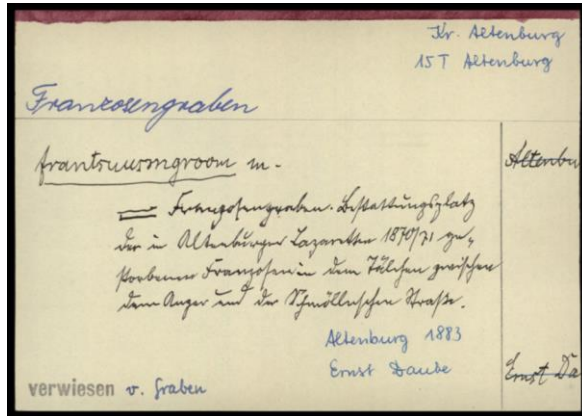 Kr. Altenburg
15 T Altenburg
Franzosengraben
frantsuusmgroom m.
Altenbu
Franzosengraben. Bestattungsplatz
der in Altenburger Lazaretten 1870/71 ge-
storbenen Franzosen in dem Tälchen zwischen
dem Anger und der Schmöllnschen Straße.
Altenburg 1883
Ernst Daube
Ernst Da
verwiesen v. Graben